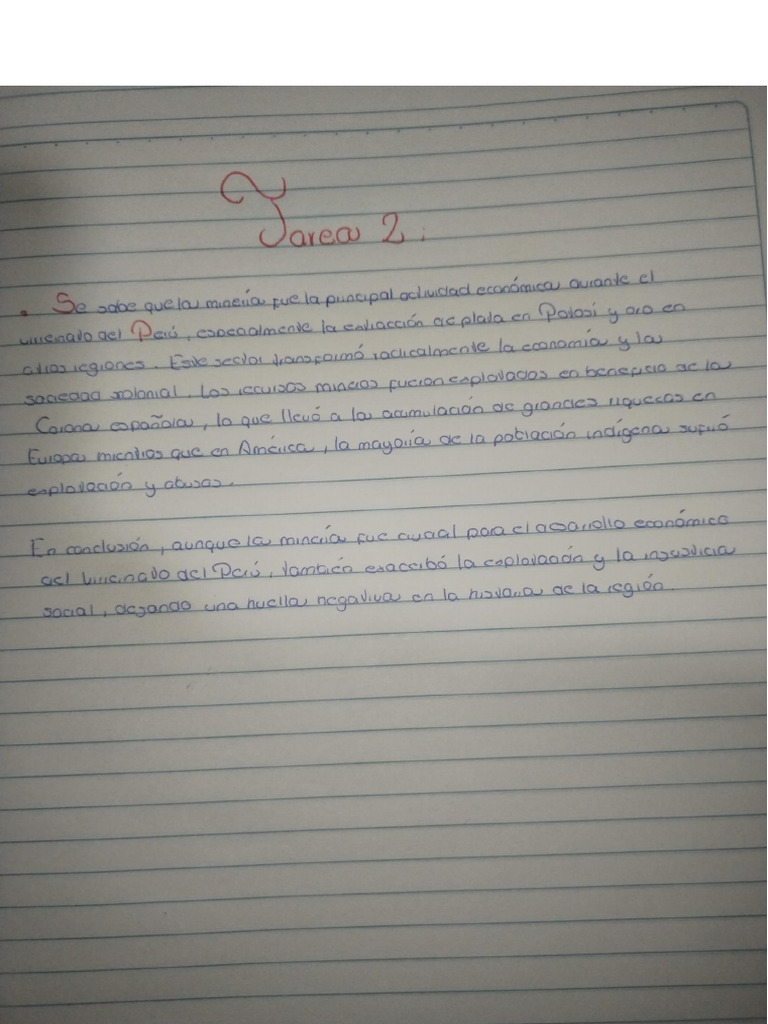 Tarea 2:
• Se sabe que la minería fue la principal actividad económica durante el
virreinato del Perú, especialmente la extracción de plata en Potosí y oro en
otras regiones. Este sector transformó radicalmente la economía y las
sociedad colonial. Los recursos mineros fueron explotados en beneficio de la
Corona española, lo que llevó a la acumulación de grandes riquezas en
Europa mientras que en América, la mayoría de la población indígena sufrió
explotación y abusos.
En conclusión, aunque la minería fue crucial para el desarrollo económico
del Virreinato del Perú, también exacerbó la explotación y la injusticia
social, dejando una huella negativa en la historia de la región.